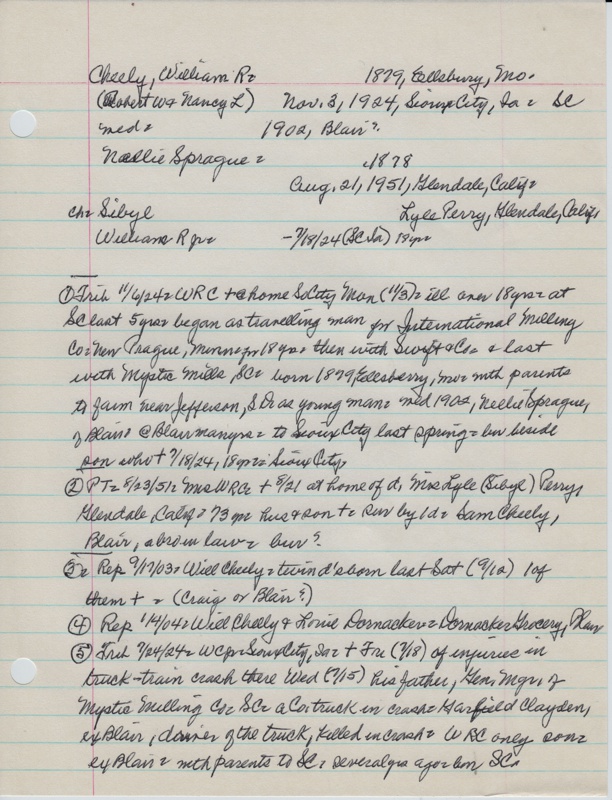 Cheely, William R= 1879, Eellsbury, Mo.
(Robert W & Nancy L) Nov. 3, 1924, Sioux City, Ia = SC
med= 1902, Blair?.
Nellie Sprague= c.1878
Aug. 21, 1951, Glendale, Calif=
ch= Sibyl Lyle Perry, Glendale, Calif.
William R jr= -7/18/24 (SC Ia) 18yr=
① Trib 11/6/24= WRC + @ home Mon (11/3)= ill over 18yrs= at
SC last 5yrs= began as travelling man for International Milling
Co= New Prague, Minn= for 18yrs= then with Swift & Co= & last
with Mystic Mills, SC= born 1879, Eellsberry, Mo= mth parents
to farm near Jefferson, SD as young man= med 1902, Nellie Sprague,
of Blair= @ Blair many yrs= to Sioux City last spring= bur beside
son who + 7/18/24, 18yr= Sioux City.
② PT= 8/23/51= Mrs WRC= + 8/21 at home of d, Mrs Lyle (Sibyl) Perry,
Glendale, Calif= 73yr= hus & son += sur by 1d= Sam Cheely,
Blair, a bro in law= bur?.
③= Rep 9/17/03= Will Cheely= twin d's born last Sat (9/12) 1 of
them + = (Craig or Blair?)
④ Rep 1/14/04= Will Cheely & Louie Dornacker= Dornacker Grocery, Blair
⑤ Trib 7/24/24= WCjr= Sioux City, Ia= + Fri (7/18) of injuries in
truck-train crash there Wed (7/15) his father, Gen. Mgr. of
Mystic Milling Co= SC= a Co. truck in crash= Garfield Clayden,
ex Blair, driver of the truck, killed in crash= WRC only son=
ex Blair= mth parents to SC= several yrs ago= bur SC.